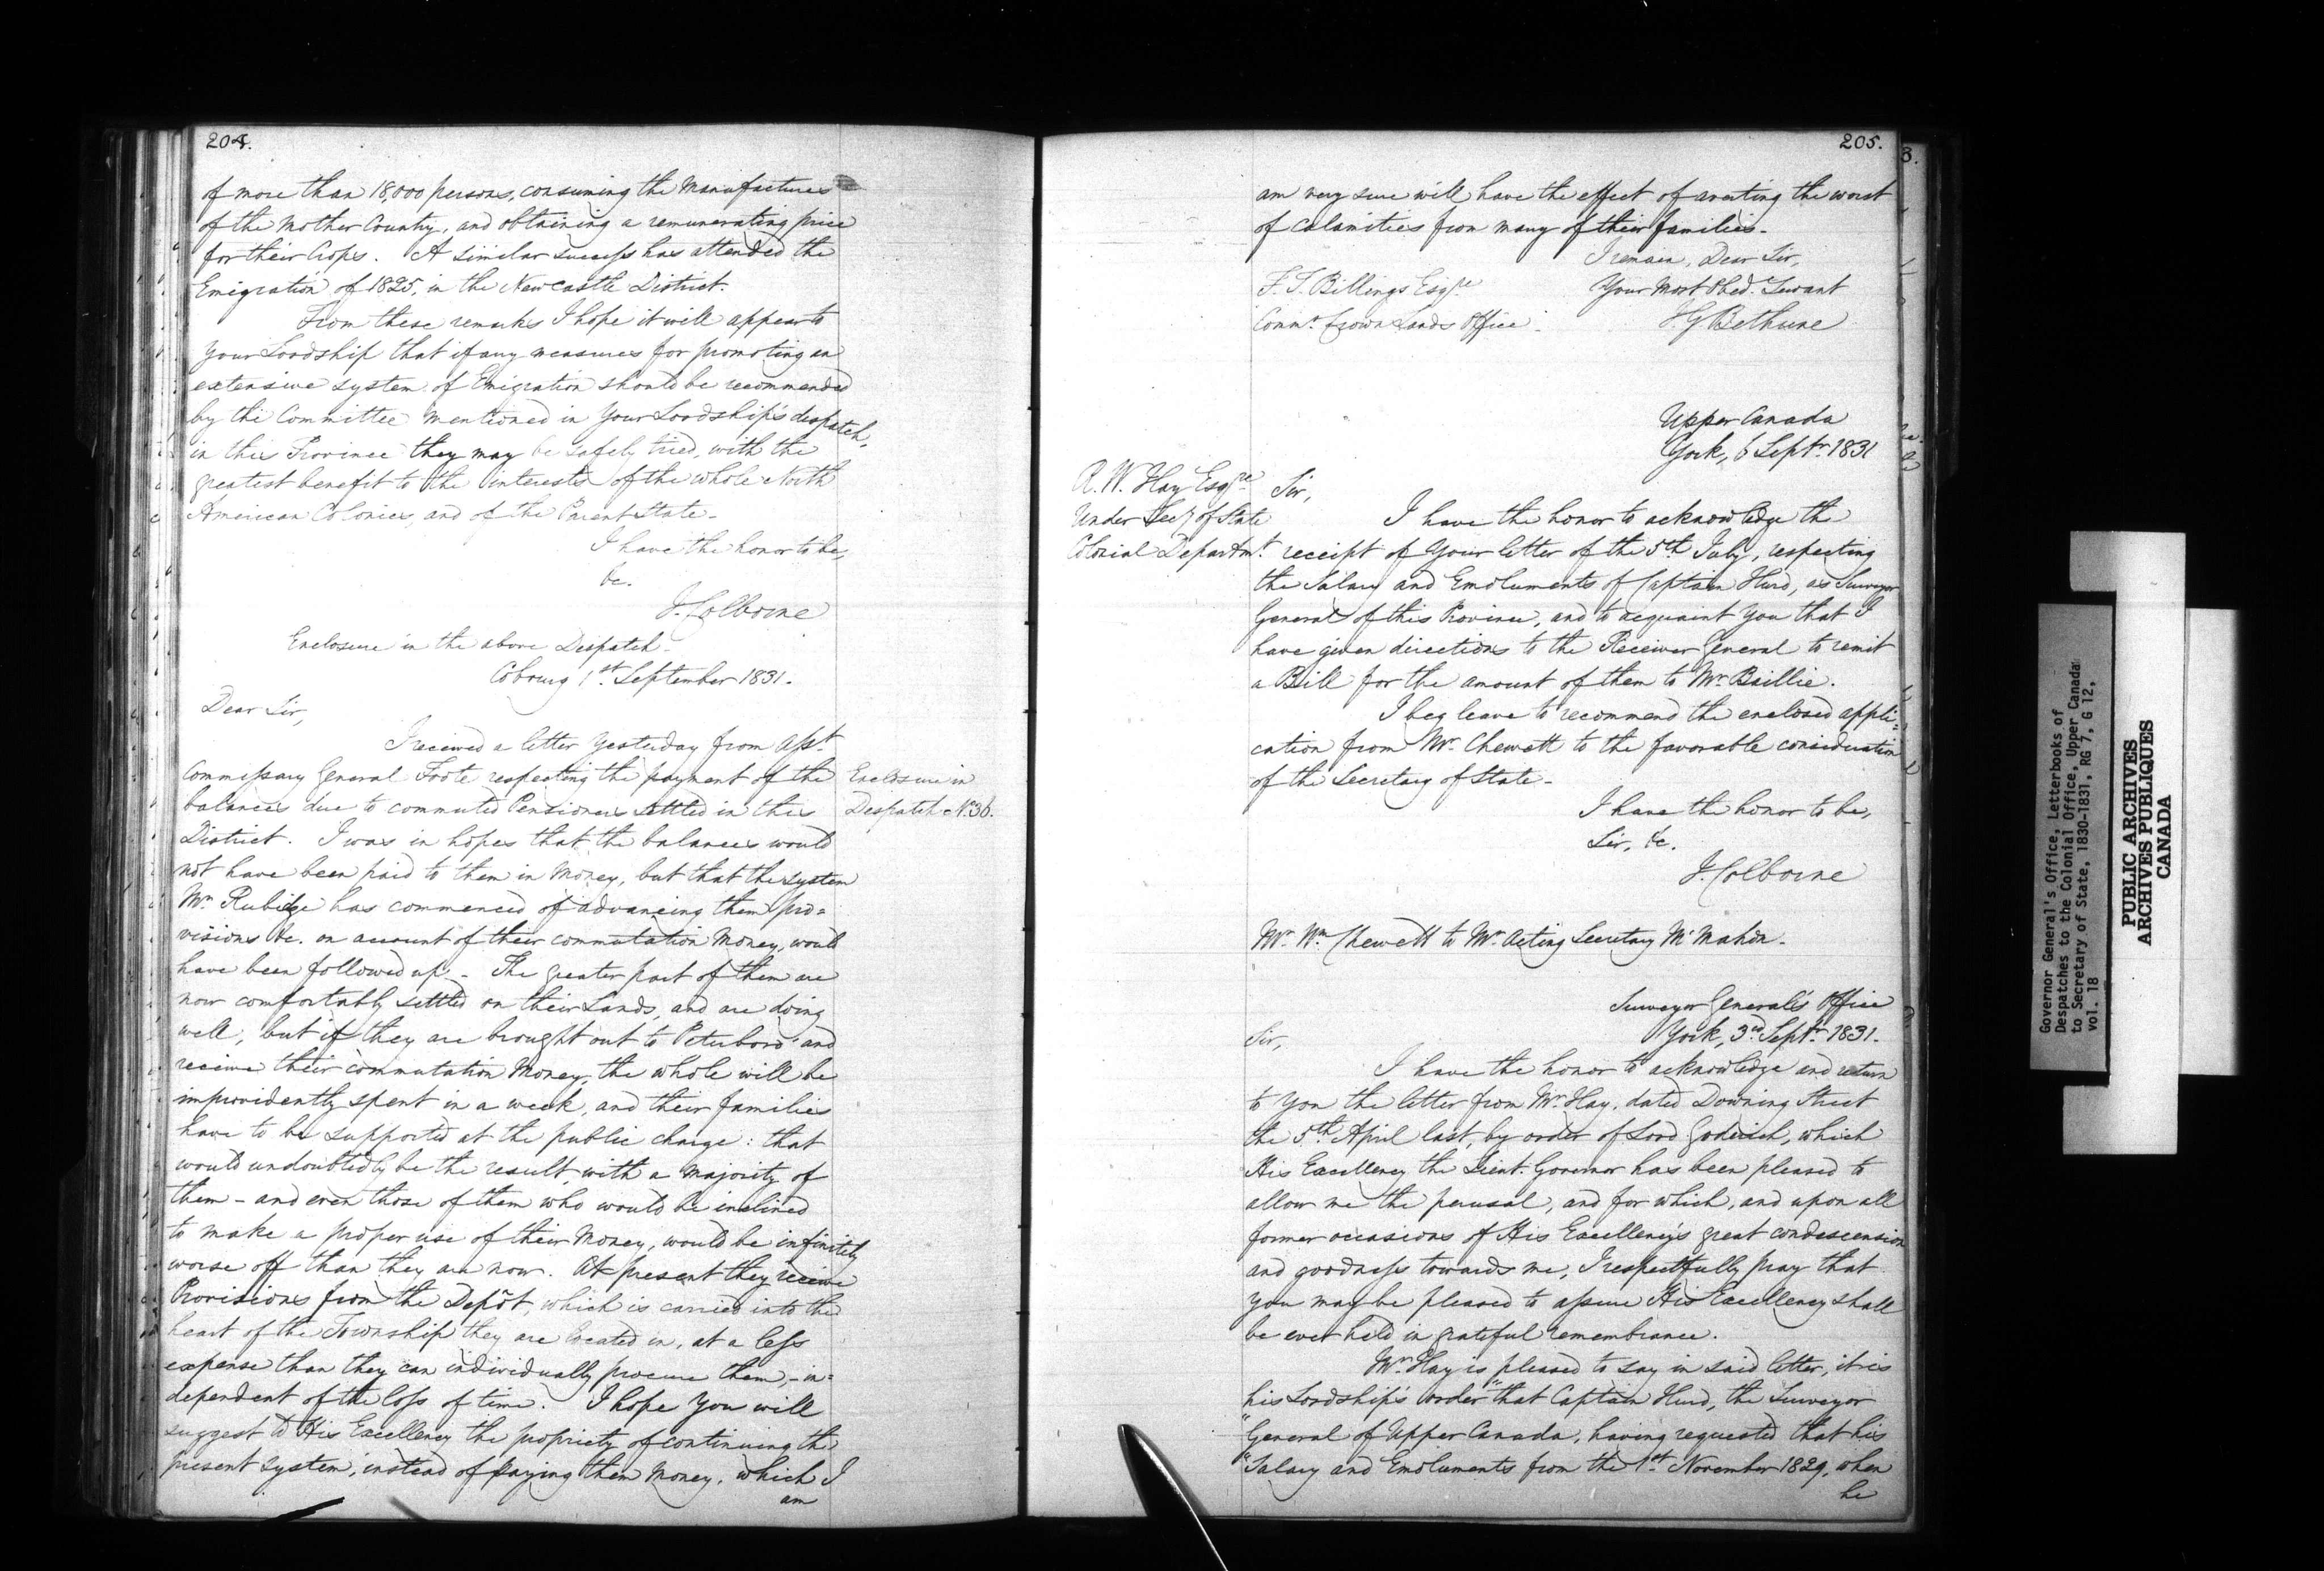 204.
of more than 18,000 persons, consuming the Manufactures
of the Mother Country, and obtaining a remunerating price
for their Crops. A similar success has attended the
Emigration of 1825, in the Newcastle District.
From these remarks I hope it will appear to
Your Lordship that if any measures for promoting an
extensive system of Emigration should be recommended
by the Committee mentioned in Your Lordship's despatch,
in this Province they may be safely tried, with the
greatest benefit to the interests of the whole North
American Colonies, and of the Parent State.
I have the honor to be,
&c.
J. Colborne
Enclosure in the above Despatch.
Cobourg 1st September 1831.
Dear Sir,
I received a letter yesterday from Asst
Commissary General Foote respecting the payment of the
Enclosure in
balances due to commuted Pensioners settled in this
Despatch No 36.
District. I was in hopes that the balances would
not have been paid to them in Money, but that the system
Mr Rubidge has commenced of advancing them pro=
visions &c. on account of their commutation Money, would
have been followed up. - The greater part of them are
now comfortably settled on their Lands, and are doing
well, but if they are brought out to Peterboro' and
receive their commutation Money, the whole will be
improvidently spent in a week, and their families
have to be supported at the public charge: that
would undoubtedly be the result, with a majority of
them - and even those of them who would be inclined
to make a proper use of their Money, would be infinitely
worse off than they are now. At present they receive
Provisions from the Depôt, which is carried into the
heart of the Township they are located in, at a less
expense than they can individually procure them, - in=
dependent of the loss of time. I hope you will
suggest to His Excellency the propriety of continuing the
present system, instead of paying them Money, which I
am
205.
am very sure will have the effect of averting the worst
of calamities from many of their families.
I remain, Dear Sir,
F. T. Billings Esqre
Your Most Obed. Servant
Commr Crown Lands Office.
J. G Bethune
Upper Canada
York, 6 Septr 1831
R. W. Hay Esqre
Under Secy of State
Colonial Departmt
Sir,
I have the honor to acknowledge the
receipt of Your letter of the 5th July, respecting
the Salary and Emoluments of Captain Hurd, as Surveyor
General of this Province, and to acquaint You that I
have given directions to the Receiver General to remit
a Bill for the amount of them to Mr Baillie.
I beg leave to recommend the enclosed appli=
cation from Mr Chewett to the favorable consideration
of the Secretary of State.
I have the honor to be,
Sir, &c.
J. Colborne
Mr Wm Chewett to Mr Acting Secretary McMahon.
Surveyor General's Office
York, 3rd Septr 1831.
Sir,
I have the honor to acknowledge and return
to you the letter from Mr Hay, dated Downing Street
the 5th April last, by order of Lord Goderich, which
His Excellency the Lieut. Governor has been pleased to
allow me the perusal, and for which, and upon all
former occasions of His Excellency's great condescension
and goodness towards me, I respectfully pray that
you may be pleased to assure His Excellency shall
be ever held in grateful remembrance.
Mr Hay is pleased to say in said letter, it is
his Lordship's order "that Captain Hurd, the Surveyor
"General of Upper Canada, having requested that his
"Salary and Emoluments from the 1st November 1829, when
he
3.
Governor General's Office, Letterbooks of
Despatches to the Colonial Office, Upper Canada
to Secretary of State, 1830-1831, RG 7, G 12,
vol. 18
PUBLIC ARCHIVES
ARCHIVES PUBLIQUES
CANADA